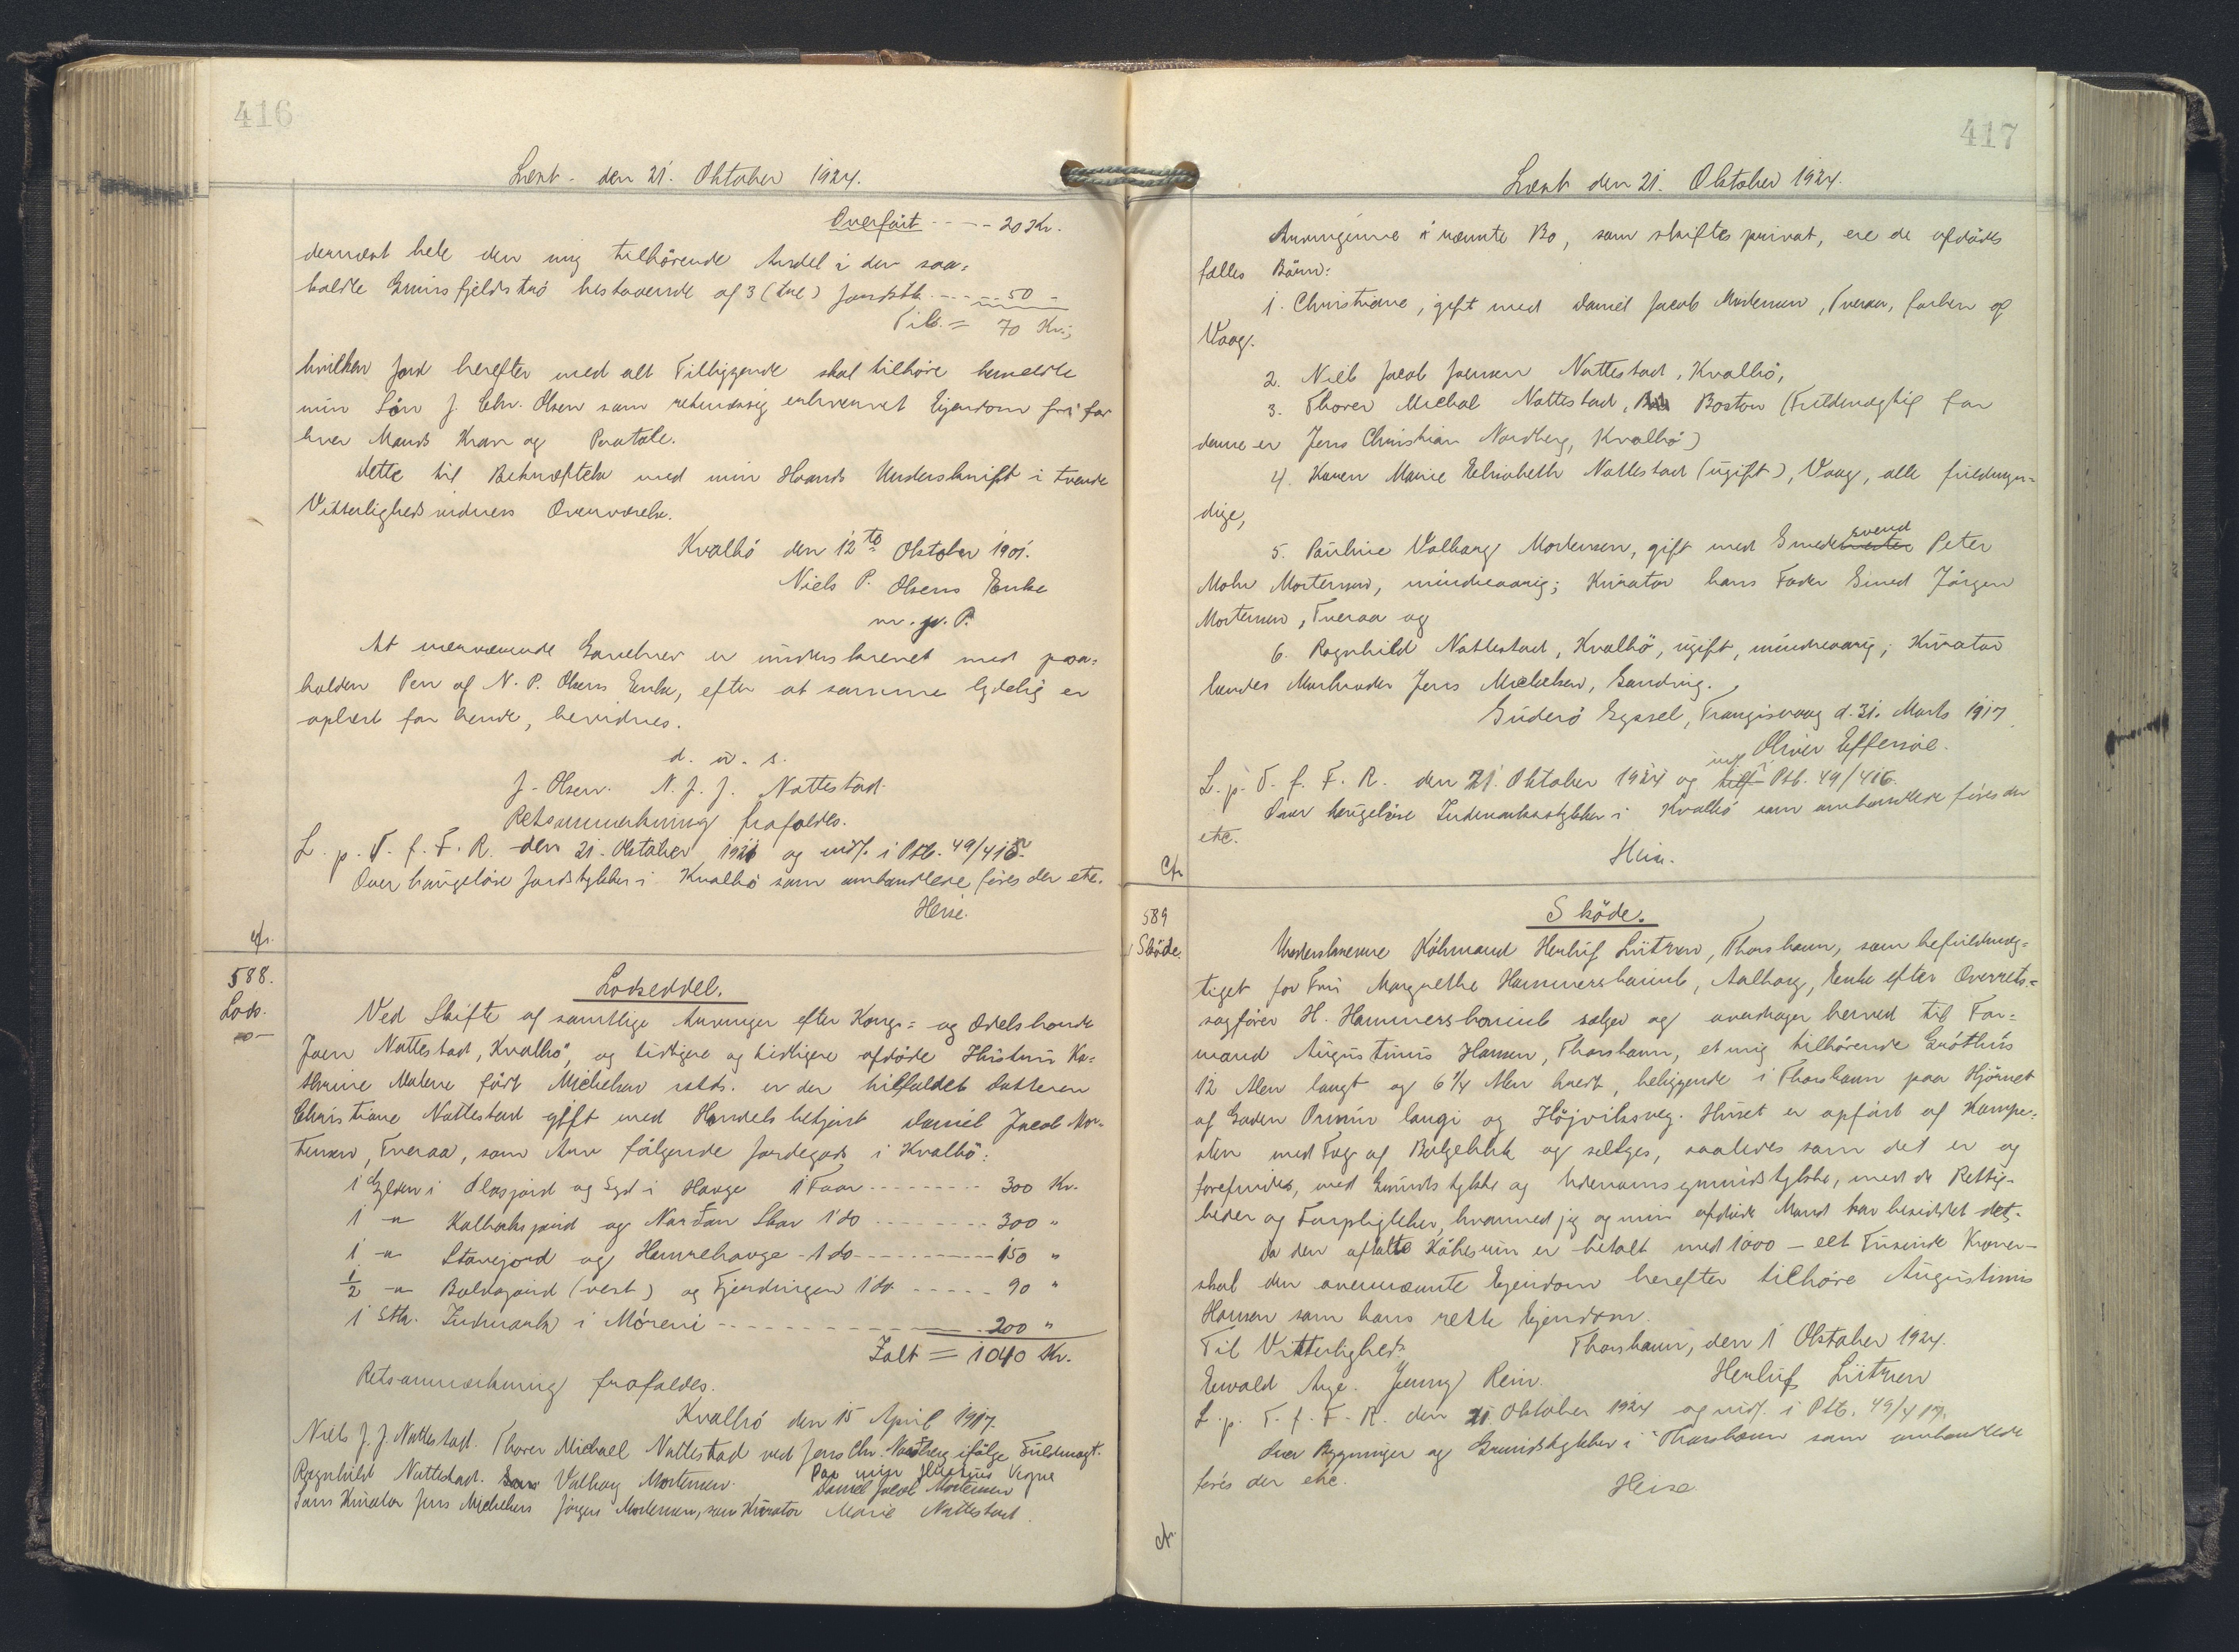 416
Læst den 21. Oktober 1924.
Overført ---- 20 Kr.
dernæst hele den mig tilhörende Andel i den saa-
kaldte Grimsfjeldströ bestaaende af 3 (tre) Jordstk. ---- 50 -
Tils. = 70 Kr.;
hvilken Jord herefter med alt Tilliggende skal tilhöre bemeldte
min Sön J. Chr. Olsen som retmæssig erhvervet Ejendom fri for
hver Mands Krav og Paatale.
Dette til Bekræftelse med min Haands Underskrift i tvende
Vitterlighedsvidners Overværelse.
Kvalbö den 12te Oktober 1901.
Niels P. Olsens Enke
m. p. P.
At nærværende Gavebrev er underskrevet med paa-
holden Pen af N. P. Olsens Enke, efter at samme lydelig er
oplæst for hende, bevidnes.
d. u. s.
J. Olsen. N. J. J. Nattestad.
Retsanmerkning frafaldes.
L. p. T. f. F. R. den 21. Oktober 1924 og indf. i Ptb. 49/415.
Over haugeløse Jordstykker i Kvalbö som omhandlede föres der etc.
Heise.
cfr.
588.
Lods-
Lodseddel.
Ved Skifte af samtlige Arvinger efter Konge- og Odelsbonde
Joen Nattestad, Kvalbö, og tidligere og tidligere afdöde Hustru Ka-
thrine Malene född Michelsen retds. er der tilfaldet Datteren
Christiane Nattestad gift med Handelsbetjent Daniel Jacob Mor-
tensen, Tveraa, som Arv fölgende Jordegods i Kvalbö:
1 Gylden i Olasjord og Syd i Hauge 1 Faar -------- 300 Kr.
1 -"- Kalbaksjord og Nordan Skar 1 do -------- 300 "
1 -"- Stavejord og Hamrehauge - 1 do -------- 150 "
1/2 -"- Bolvajord (vest) og Fjerdingen 1 do ----- 90 "
1 Stk. Indmark i Móreni -------- 200 "
Ialt = 1040 Kr.
Retsanmærkning frafaldes.
Kvalbö den 15 April 1917.
Niels J. J. Nattestad. Thorer Michael Nattestad ved Jens Chr. Nordberg ifölge Fuldmagt.
Ragnhild Nattestad. Valborg Mortensen. Paa min Hustrus Vegne
Daniel Jacob Mortensen
Som Kurator Jens Michelsen Jörgen Mortensen, som Kurator Marie Nattestad.
417
Læst den 21. Oktober 1924.
Arvingerne i nævnte Bo, som skiftes privat, ere de afdödes
fælles Börn:
1. Christiane, gift med Daniel Jacob Mortensen, Tveraa, forhen af
Vaag.
2. Niels Jacob Joensen Nattestad, Kvalbö,
3. Thorer Michal Nattestad, Boston (Fuldmægtig for
denne er Jens Christian Nordberg, Kvalbö)
4. Karen Marie Elisabeth Nattestad (ugift), Vaag, alle fuldmyn-
dige,
5. Pauline Valborg Mortensen, gift med Smedesvend Peter
Mohr Mortensen, mindreaarig; Kurator hans Fader Smed Jörgen
Mortensen, Tveraa og
6. Ragnhild Nattestad, Kvalbö, ugift, mindreaarig; Kurator
hendes Morbroder Jens Michelsen, Sandvig.
Suderö Syssel, Trangisvaag d. 31. Marts 1917
Oliver Effersöe.
L. p. T. f. F. R. den 21 Oktober 1924 og indf. i Ptb. 49/416.
Over haugelöse Indmarksstykker i Kvalbö som omhandlede föres der
etc.
Heise.
cfr
589
Sköde.
Sköde.
Underskrevne Köbmand Herluf Lützen, Thorshavn, som befuldmæg-
tiget for Fru Margrethe Hammershaimb, Aalborg, Enke efter Overrets-
sagförer H. Hammershaimb sælger og overdrager herved til For-
mand Augustinus Hansen, Thorshavn, et mig tilhörende Gróthús
12 Alen langt og 6 1/4 Alen bredt, beliggende i Thorshavn paa Hjörnet
af Gaden Ormur langi og Höjviksveg. Huset er opfört af Kampe-
sten med Tag af Bölgeblik og sælges, saaledes som det er og
forefindes, med Grundstykke og Udenomsgrundstykke, med de Rettig-
heder og Forpligtelser, hvormed jeg og min afdöde Mand har besiddet det.
Da den aftalte Köbesum er betalt med 1000 - eet Tusinde Kroner -
skal den ovennævnte Ejendom herefter tilhöre Augustinus
Hansen som hans rette Ejendom.
Til Vitterlighed: Thorshavn, den 1 Oktober 1924.
Ewald Arge. Jenny Rein. Herluf Lützen
L. p. T. f. F. R. den 21 Oktober 1924 og indf. i Ptb. 49/417.
Over Bygninger og Grundstykker i Thorshavn som omhandlede
föres der etc.
Heise
cfr.